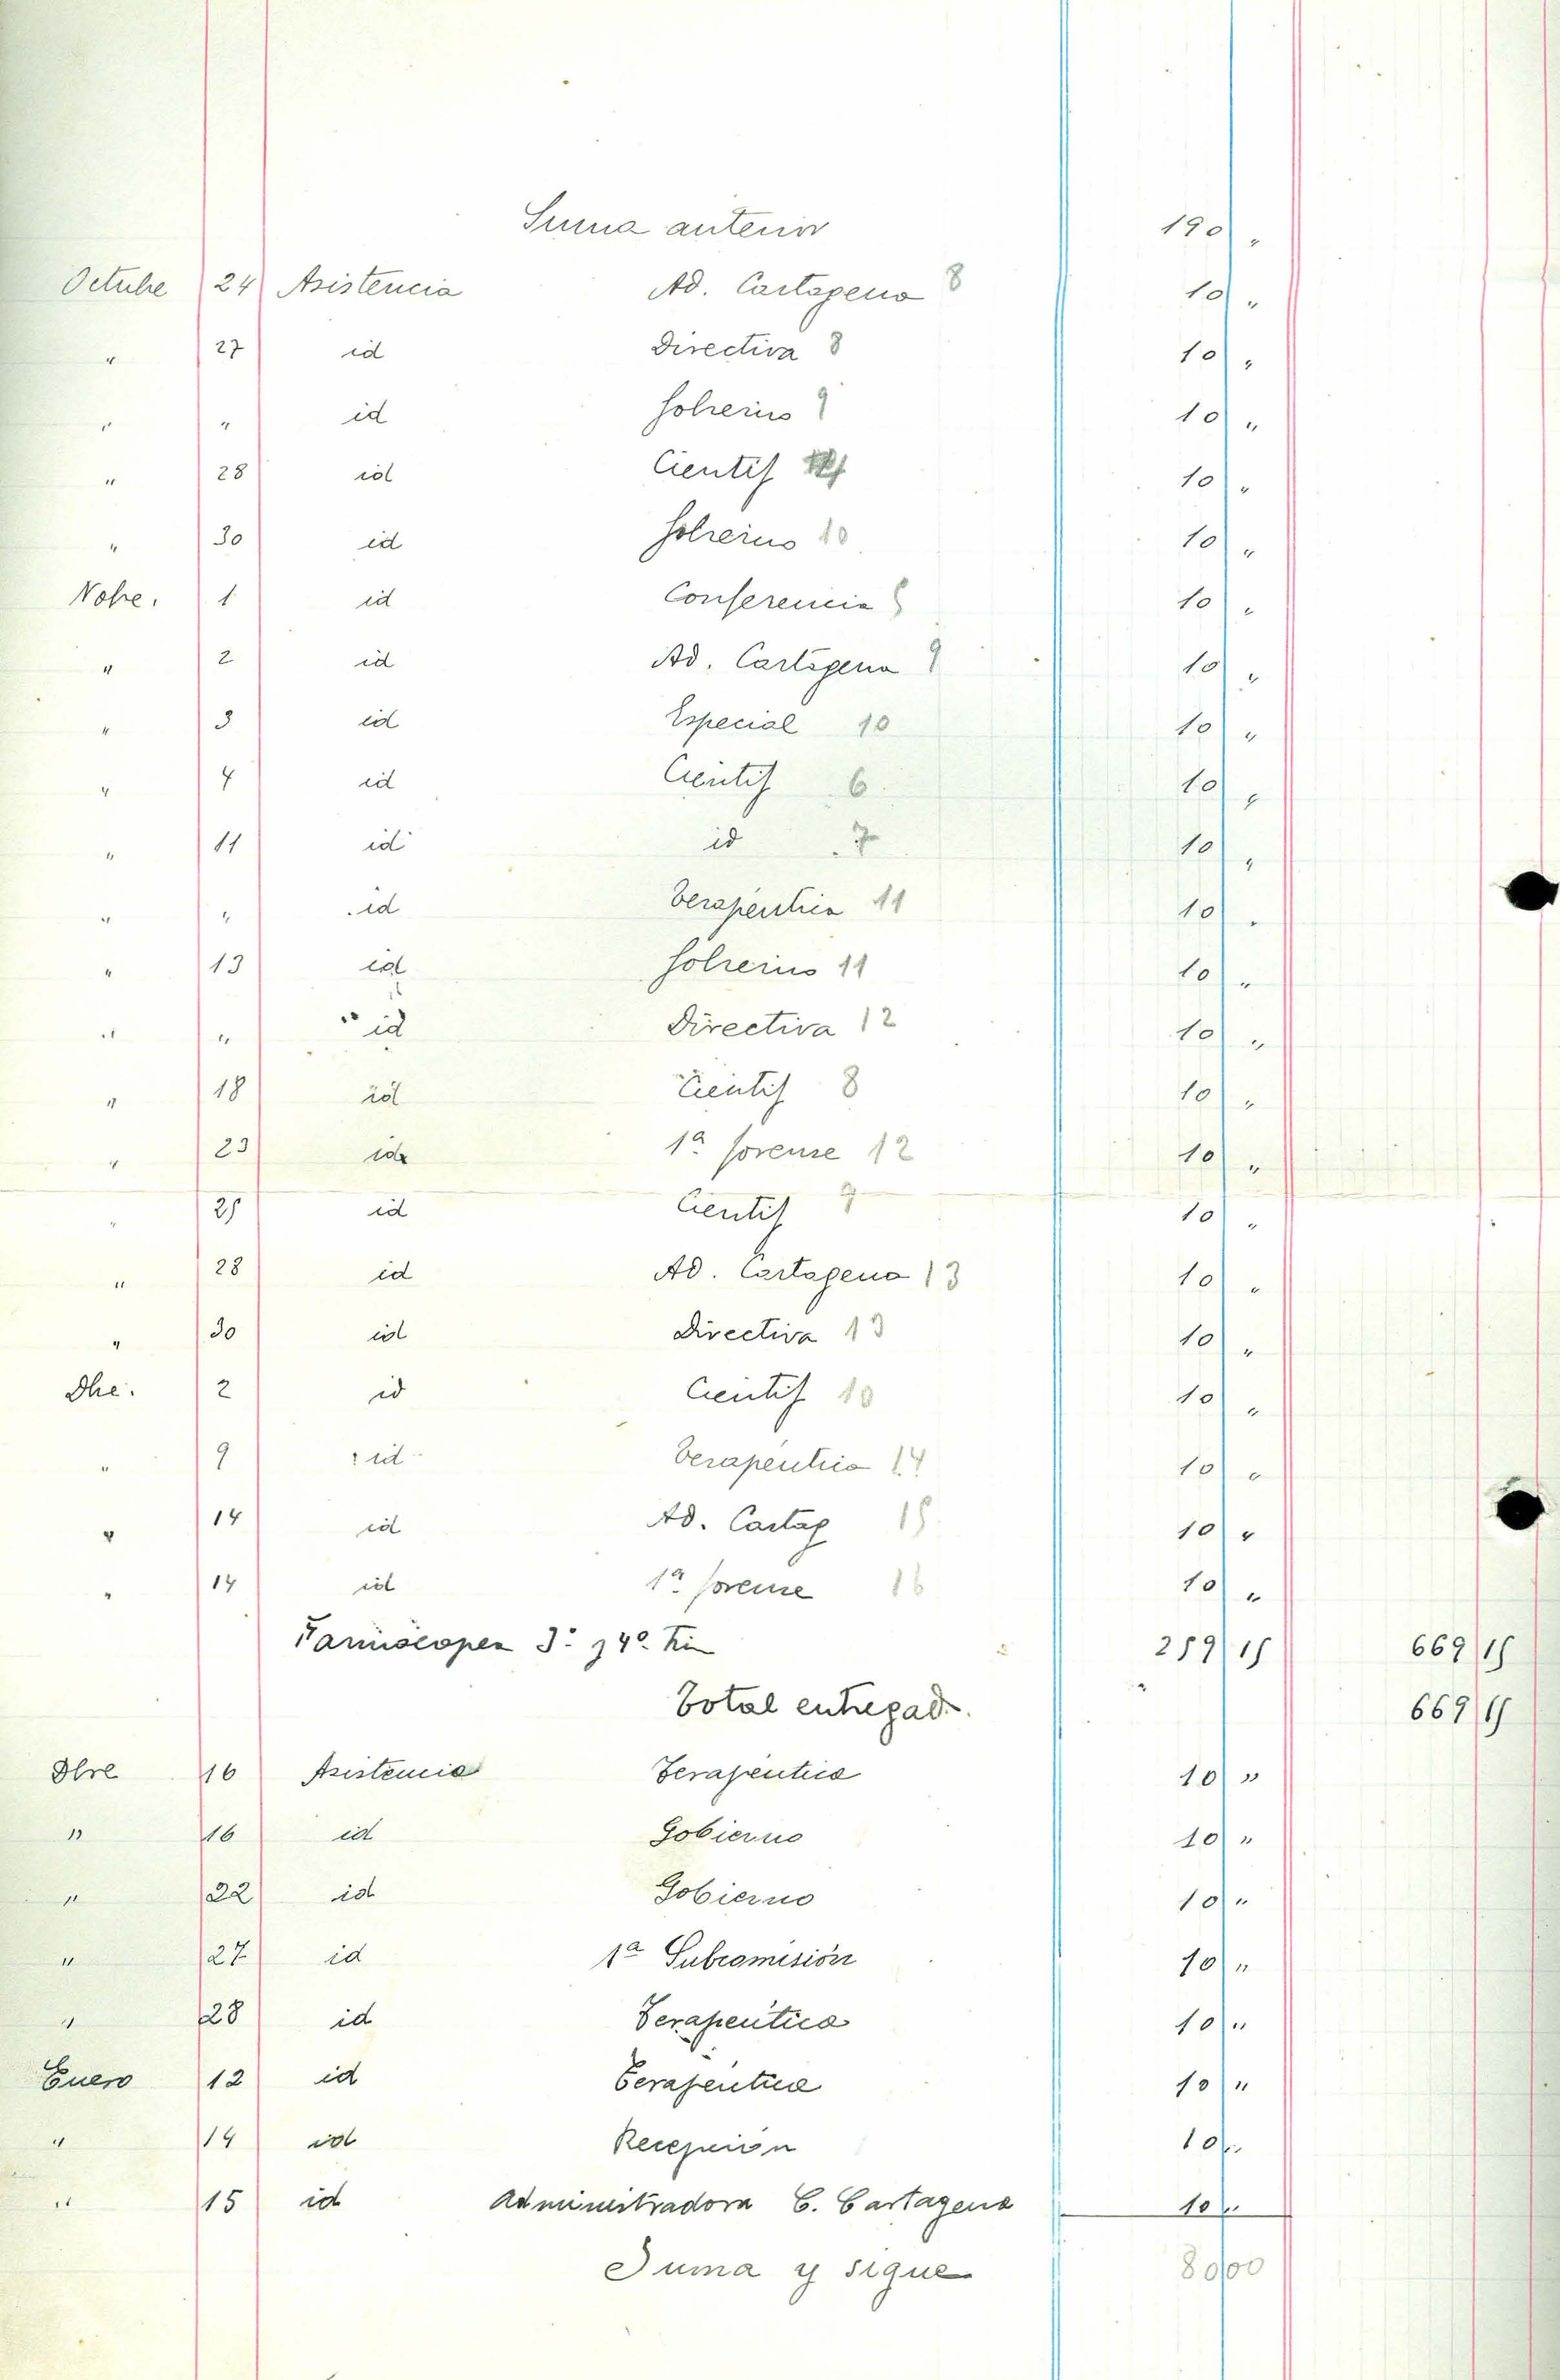 Suma anterior 190 "
Octubre 24 Asistencia Ad. Cartagena 8 10 "
" 27 id Directiva 8 10 "
" " id Gobierno 9 10 "
" 28 id Cientif 10 "
" 30 id Gobierno 10 10 "
Nobre. 1 id Conferencia 10 "
" 2 id Ad. Cartagena 9 10 "
" 3 id Especial 10 10 "
" 4 id Cientif 6 10 "
" 11 id id 7 10 "
" " id Terapéutica 11 10 "
" 13 id Gobierno 11 10 "
" " id Directiva 12 10 "
" 18 id Cientif 8 10 "
" 23 id 1ª forense 12 10 "
" 25 id Cientif 9 10 "
" 28 id Ad. Cartagena 13 10 "
" 30 id Directiva 13 10 "
Dbe. 2 id Cientif 10 10 "
" 9 id Terapéutica 14 10 "
" 14 id Ad. Cartag 15 10 "
" 14 id 1ª forense 16 10 "
Farmacopea 3º y 4º Tri 259 15 669 15
Total entregado. 669 15
Dbre 16 Asistencia Terapéutica 10 "
" 16 id Gobierno 10 "
" 22 id Gobierno 10 "
" 27 id 1ª Subcomisión 10 "
" 28 id Terapéutica 10 "
Enero 12 id Terapéutica 10 "
" 14 id Recepción 10 "
" 15 id Administradora C. Cartagena 10 "
Suma y sigue 80 00